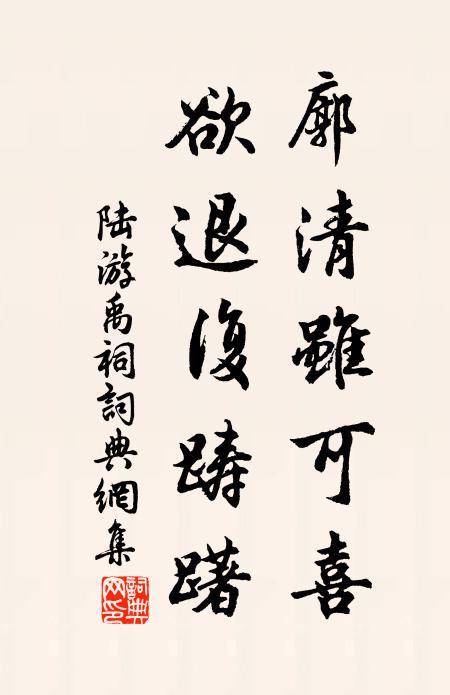 廓清雖可喜
欲退復踌躇
陆游禹祠詞典網集
詞典
网印